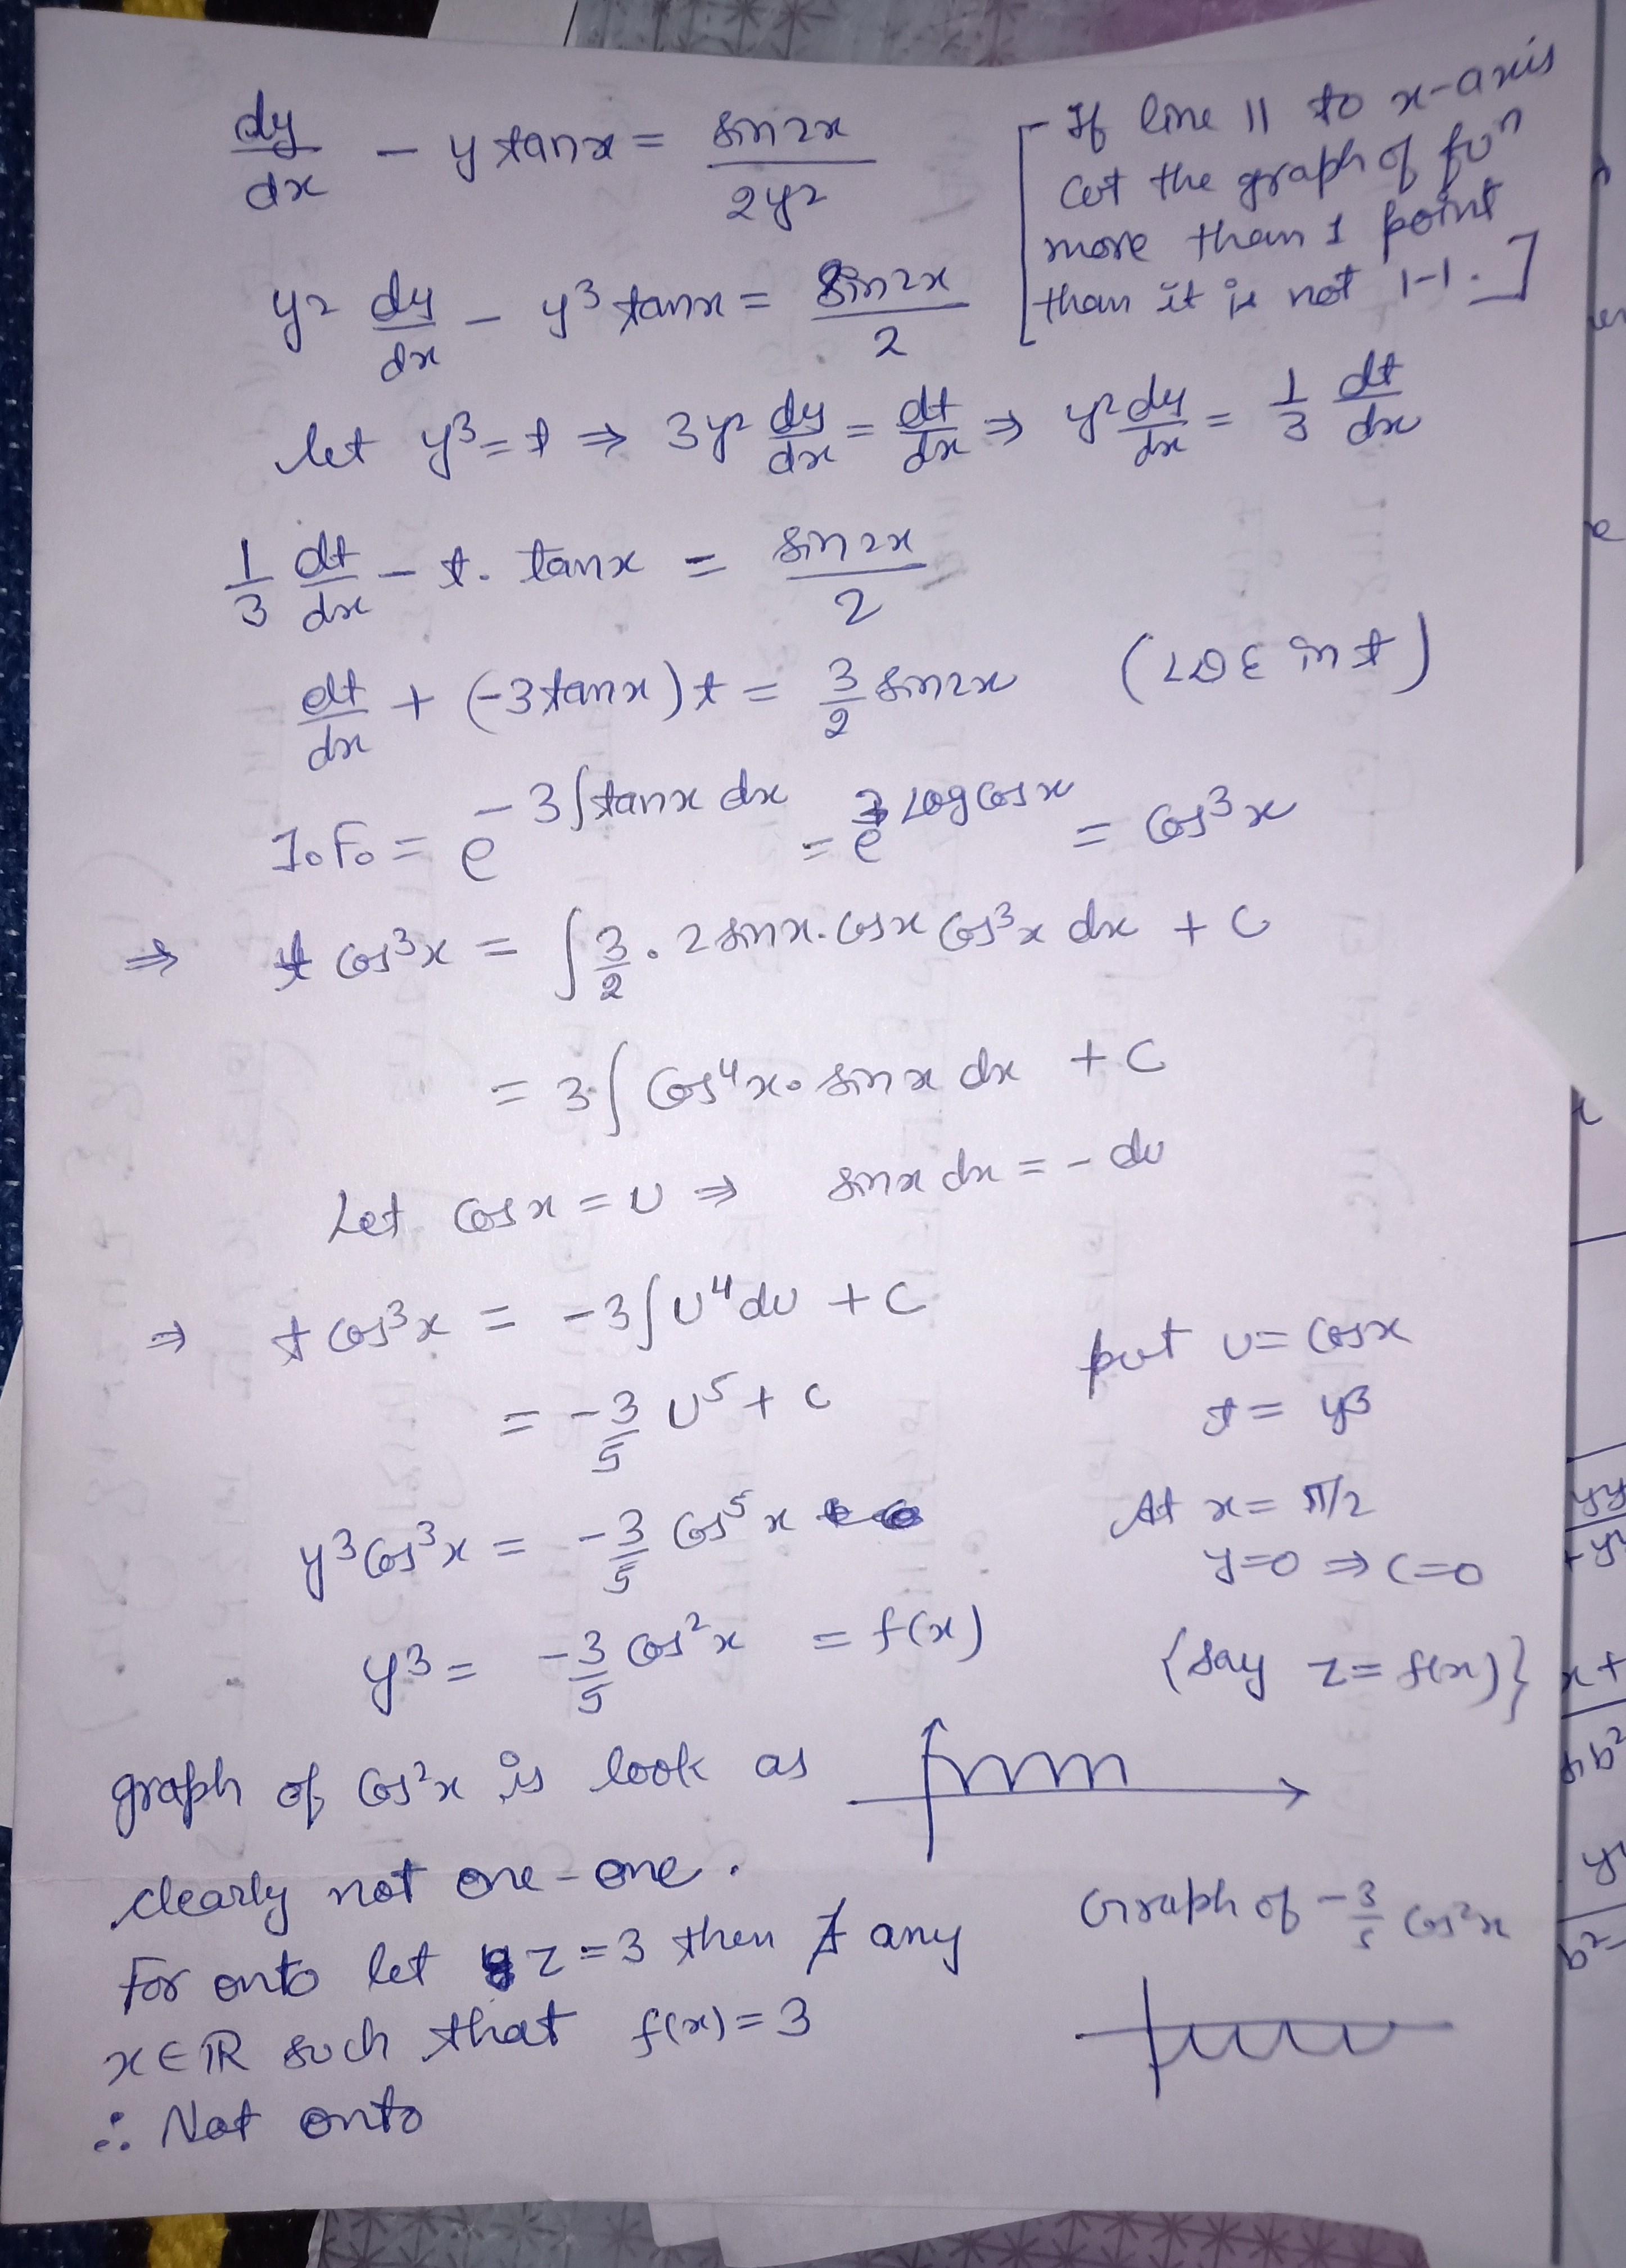 dy/dx - y tanx = sin2x/2y²
[If line || to x-axis
cut the graph of fuⁿ
more than 1 point
than it is not 1-1.]
y² dy/dx - y³ tanx = sin2x/2
let y³ = t ⇒ 3y² dy/dx = dt/dx ⇒ y² dy/dx = 1/3 dt/dx
1/3 dt/dx - t. tanx = sin2x/2
dt/dx + (-3tanx)t = 3/2 sin2x (LDE in t)
I.F. = e^(-3∫tanx dx) = e^(3 log cosx) = cos³x
⇒ t cos³x = ∫3/2 . 2 sinx. cosx cos³x dx + c
= 3.∫cos⁴x. sinx dx + c
Let cosx = u ⇒ sinx dx = - du
⇒ t cos³x = -3∫u⁴du + c
= -3/5 u⁵ + c
put u = cosx
t = y3
y³cos³x = -3/5 cos⁵x
At x = π/2
y=0 ⇒ c=0
y3 = -3/5 cos²x = f(x)
{say z = f(x)}
graph of cos²x is look as
clearly not one-one.
For onto let z=3 then ∄ any
x∈ℝ such that f(x)=3
∴ Not onto
Graph of -3/5 cos²x